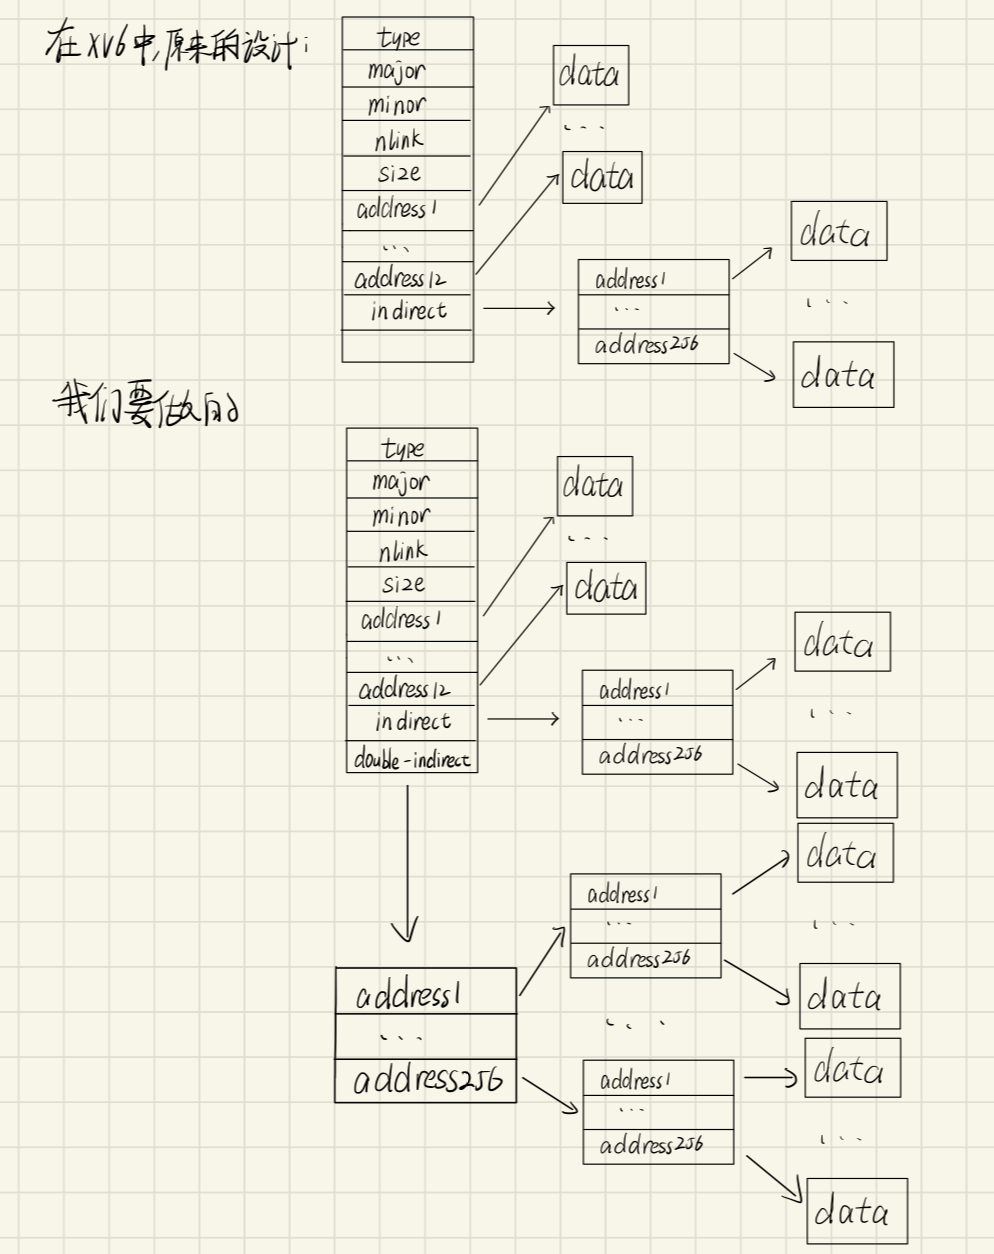 在XV6中,原来的设计:
type
major
minor
nlink
size
address1
...
address12
indirect
data
...
data
address1
...
address256
data
...
data
我们要做的
type
major
minor
nlink
size
address1
...
address12
indirect
double-indirect
data
...
data
address1
...
address256
data
...
data
address1
...
address256
address1
...
address256
data
...
data
...
address1
...
address256
data
...
data